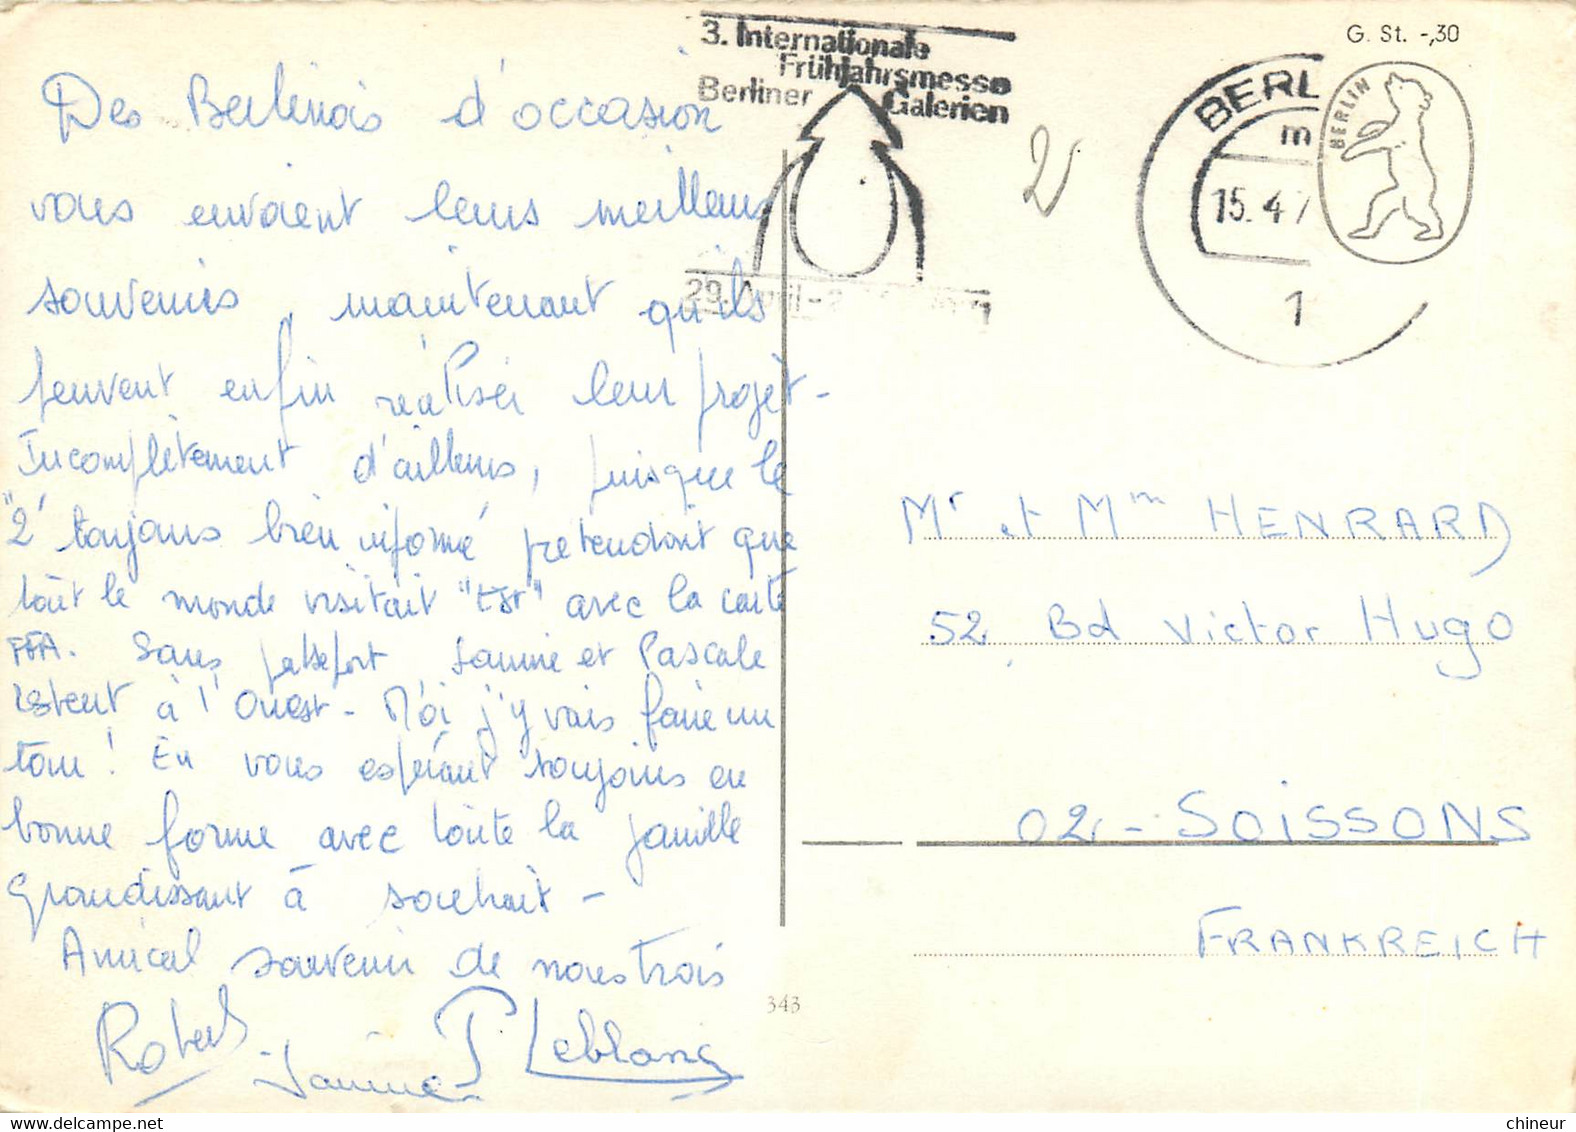 Des Berlinois d'occasion
vous envoient leurs meilleurs
souvenirs, maintenant qu'ils
peuvent enfin réaliser leur projet -
Incomplètement d'ailleurs, puisque le
"2" toujours bien informé pretendait que
tout le monde visitait "Est" avec la carte
FFA. Sans passeport Janine et Pascale
restent à l'Ouest - Moi j'y vais faire un
tour ! En vous espérant toujours en
bonne forme avec toute la famille
grandissant à souhait -
Amical souvenir de nous trois
Robert Janine P Leblanc
3. Internationale
Frühjahrsmesse
Berliner Galerien
29. April -
2
G. St. -,30
BERL
BERLIN
m
15. 4. 7
1
Mr et Mm HENRARD
52 Bd Victor Hugo
02 - SOISSONS
FRANKREICH
343
chineur